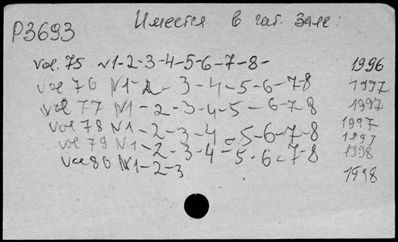 P3693 Имеется в чит. зале:
vol. 75 N1-2-3-4-5-6-7-8- 1996
vol 76 N1-2-3-4-5-6-7-8 1997
vol 77 N1-2-3-4-5-6-7-8 1997
vol 78 N1-2-3-4-5-6-7-8 1997
vol 79 N1-2-3-4-5-6-7-8 1997
1998
vol 80 N1-2-3 1998